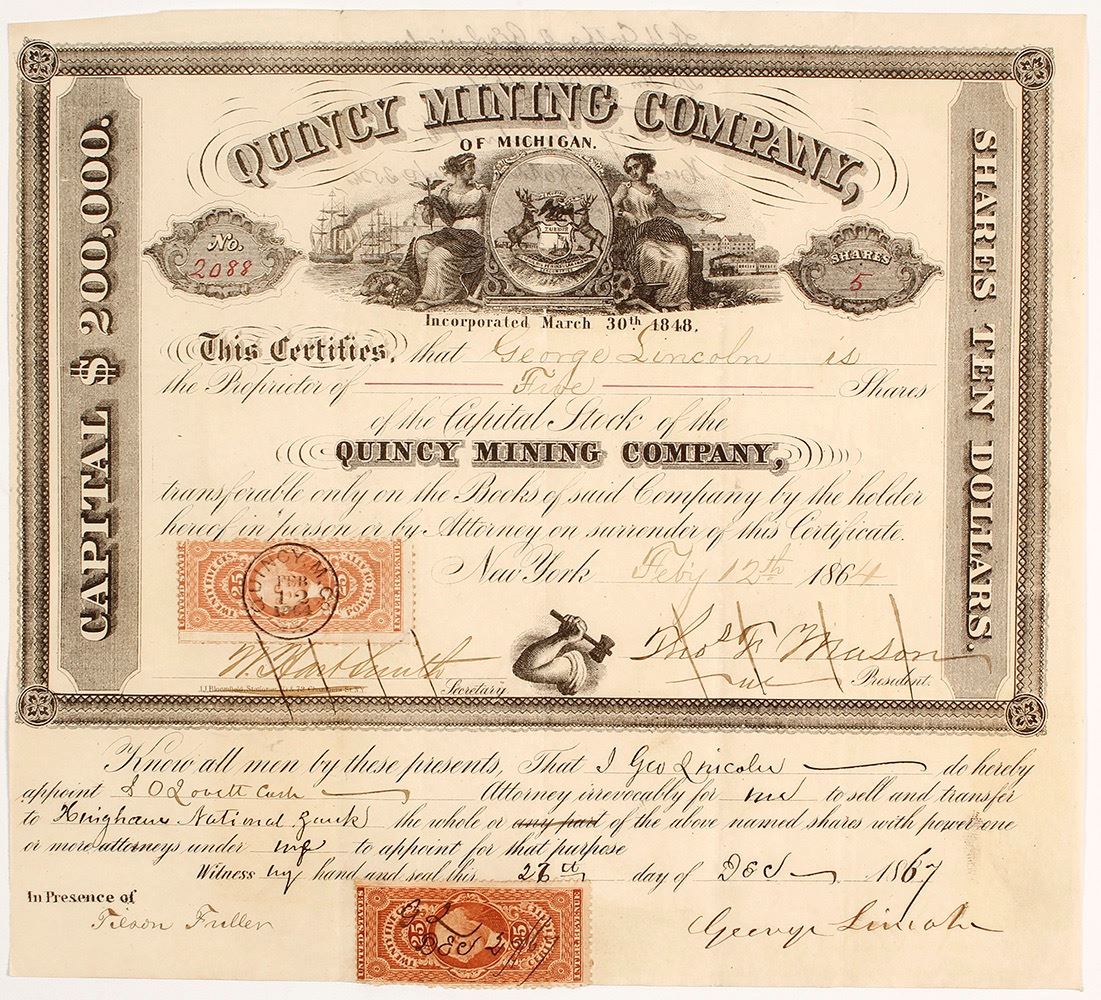 QUINCY MINING COMPANY,
OF MICHIGAN.
CAPITAL $ 200,000.
SHARES TEN DOLLARS.
No.
2088
SHARES
5
TUEBOR
Incorporated March 30th 1848.
This Certifies, that George Lincoln is
the Proprietor of Five Shares
of the Capital Stock of the
QUINCY MINING COMPANY,
transferable only on the Books of said Company by the holder
hereof in person or by Attorney on surrender of this Certificate.
New York Feby 12th 1864
TWENTY FIVE CTS.
25
POWER OF
INTER. REVENUE
QUINCY M. CO.
FEB
12
W. Hart Smith
Secretary.
Thos F Mason
President.
Know all men by these presents, That I Geo Lincoln do hereby
appoint S O Lovett Cash Attorney irrevocably for me to sell and transfer
to Hingham National Bank the whole or any part of the above named shares with power one
or more attorneys under me to appoint for that purpose
Witness my hand and seal this 26th day of Dec 1867
In Presence of
Tilson Fuller
George Lincoln
UNITED STATES
TWENTY FIVE
25
G L
DEC 2
25
CENTS
INTER. REVENUE